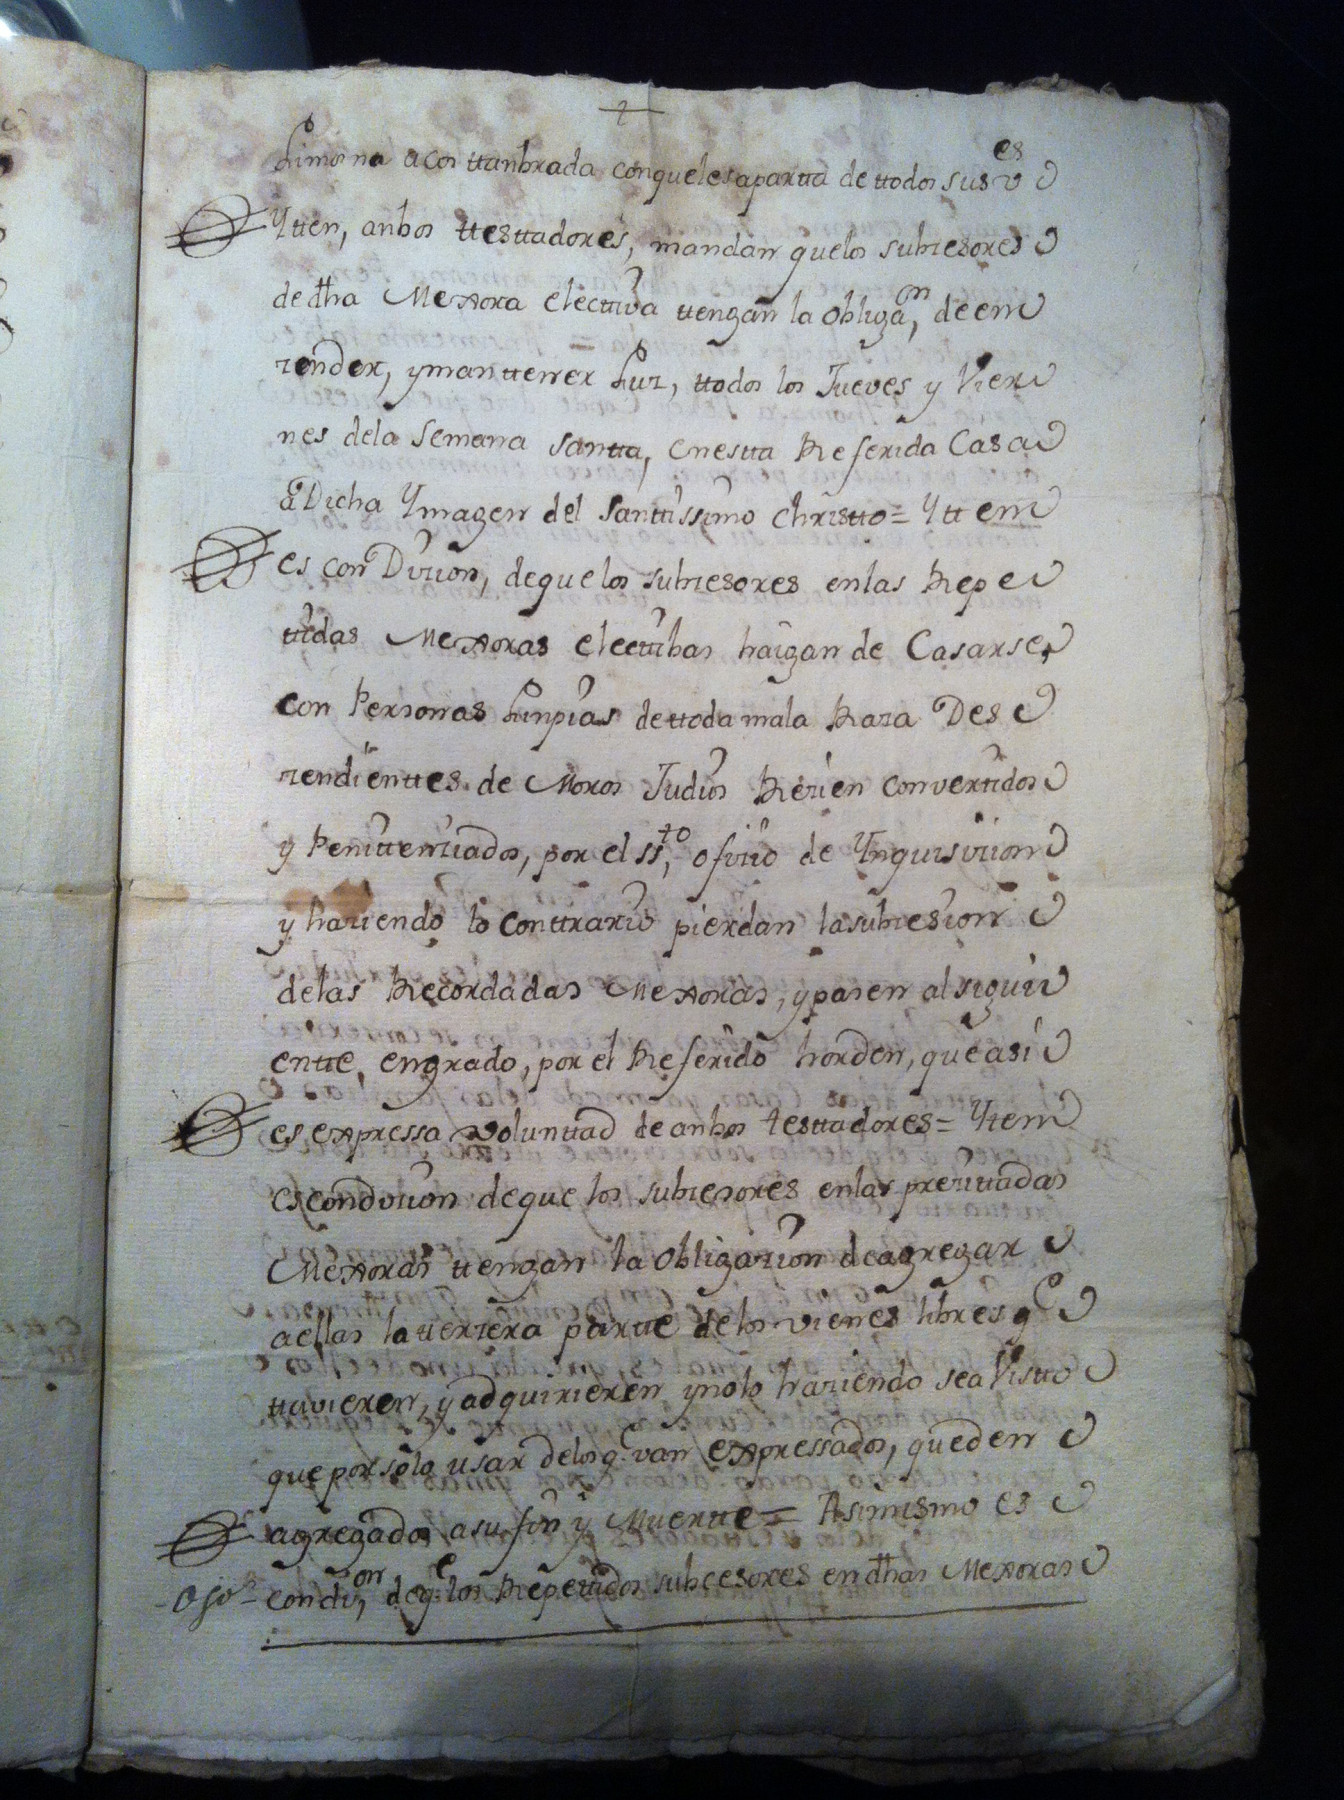 Limosna acosttanbrada conque les apartta de ttodos sus v.es
Ytten, anbos ttesttadores, mandan que los subzesores
de dha Mexora electtiva ttengan la obligaon, de en
zender, y manttener Luz, ttodos los Jueves y Vier
nes de la Semana Santta, en estta Referida Casa
a Dicha Ymagen del Santtissimo Christto = Ytten
es condizion, de que los subzesores en las Repe
ttidas Mexoras electtibas haigan de Casarse
con Personas Linpias de ttoda mala Raza Des
zendienttes de Moros Judios Rezien converttidos
y Penittenziados, por el ss.to ofizio de Ynquisizion
y haziendo lo Conttrario pierdan la subzesion
de las Recordadas Mexoras, y pasen al siguii
entte, en grado, por el Referido horden, que asi
es expressa voluntad de anbos testtadores = Yten
es condizion de que los subzesores en las prezittadas
Mexoras ttengan la obligazion de agregar
a ellas la tterzera partte de los vienes libres q.e
ttuvieren, y adquirieren y no lo haziendo sea Vistto
que por solo usar de los q.e van expressados, queden
agregados a su fin y Muertte = Asimismo es
ojo condi.on, de q.e los Repettidos subcesores en dhas Mexoras